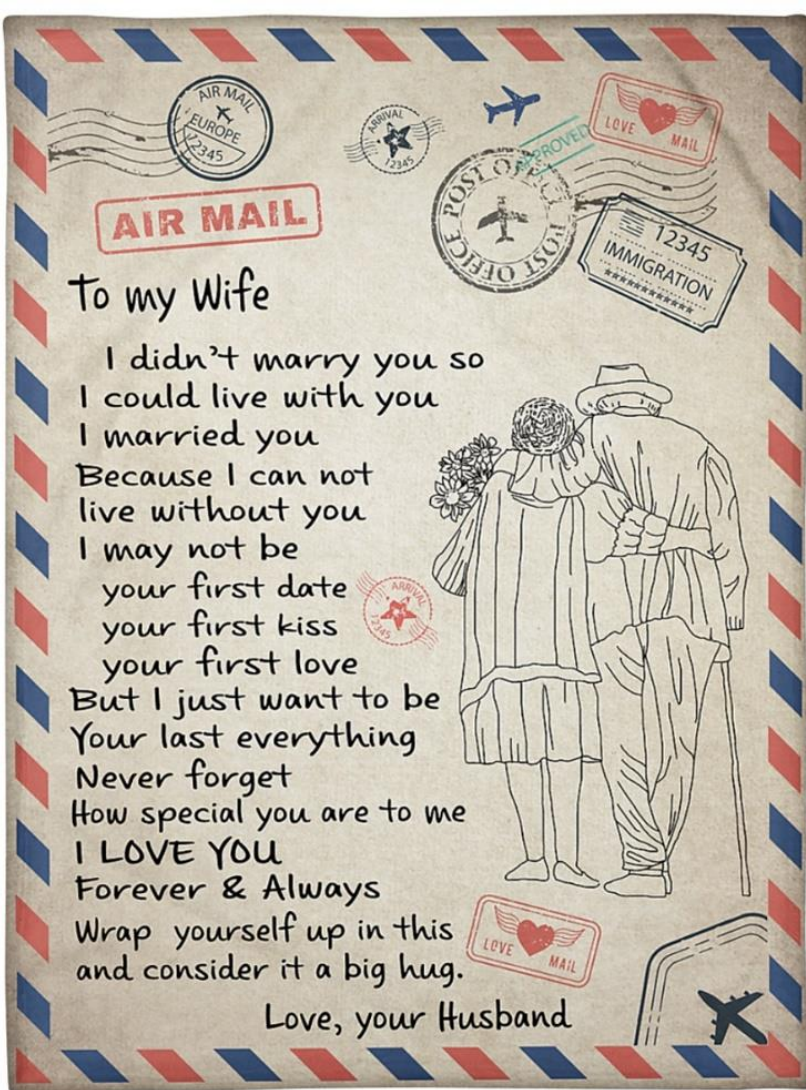 AIR MAIL
EUROPE
12345
ARRIVAL
12345
APPROVED
LOVE MAIL
POST OFFICE POST OFFICE
12345
IMMIGRATION
************
AIR MAIL
To my Wife
I didn't marry you so
I could live with you
I married you
Because I can not
live without you
I may not be
your first date
your first kiss
your first love
ARRIVAL
12345
But I just want to be
Your last everything
Never forget
How special you are to me
I LOVE YOU
Forever & Always
Wrap yourself up in this
and consider it a big hug.
LOVE MAIL
Love, your Husband